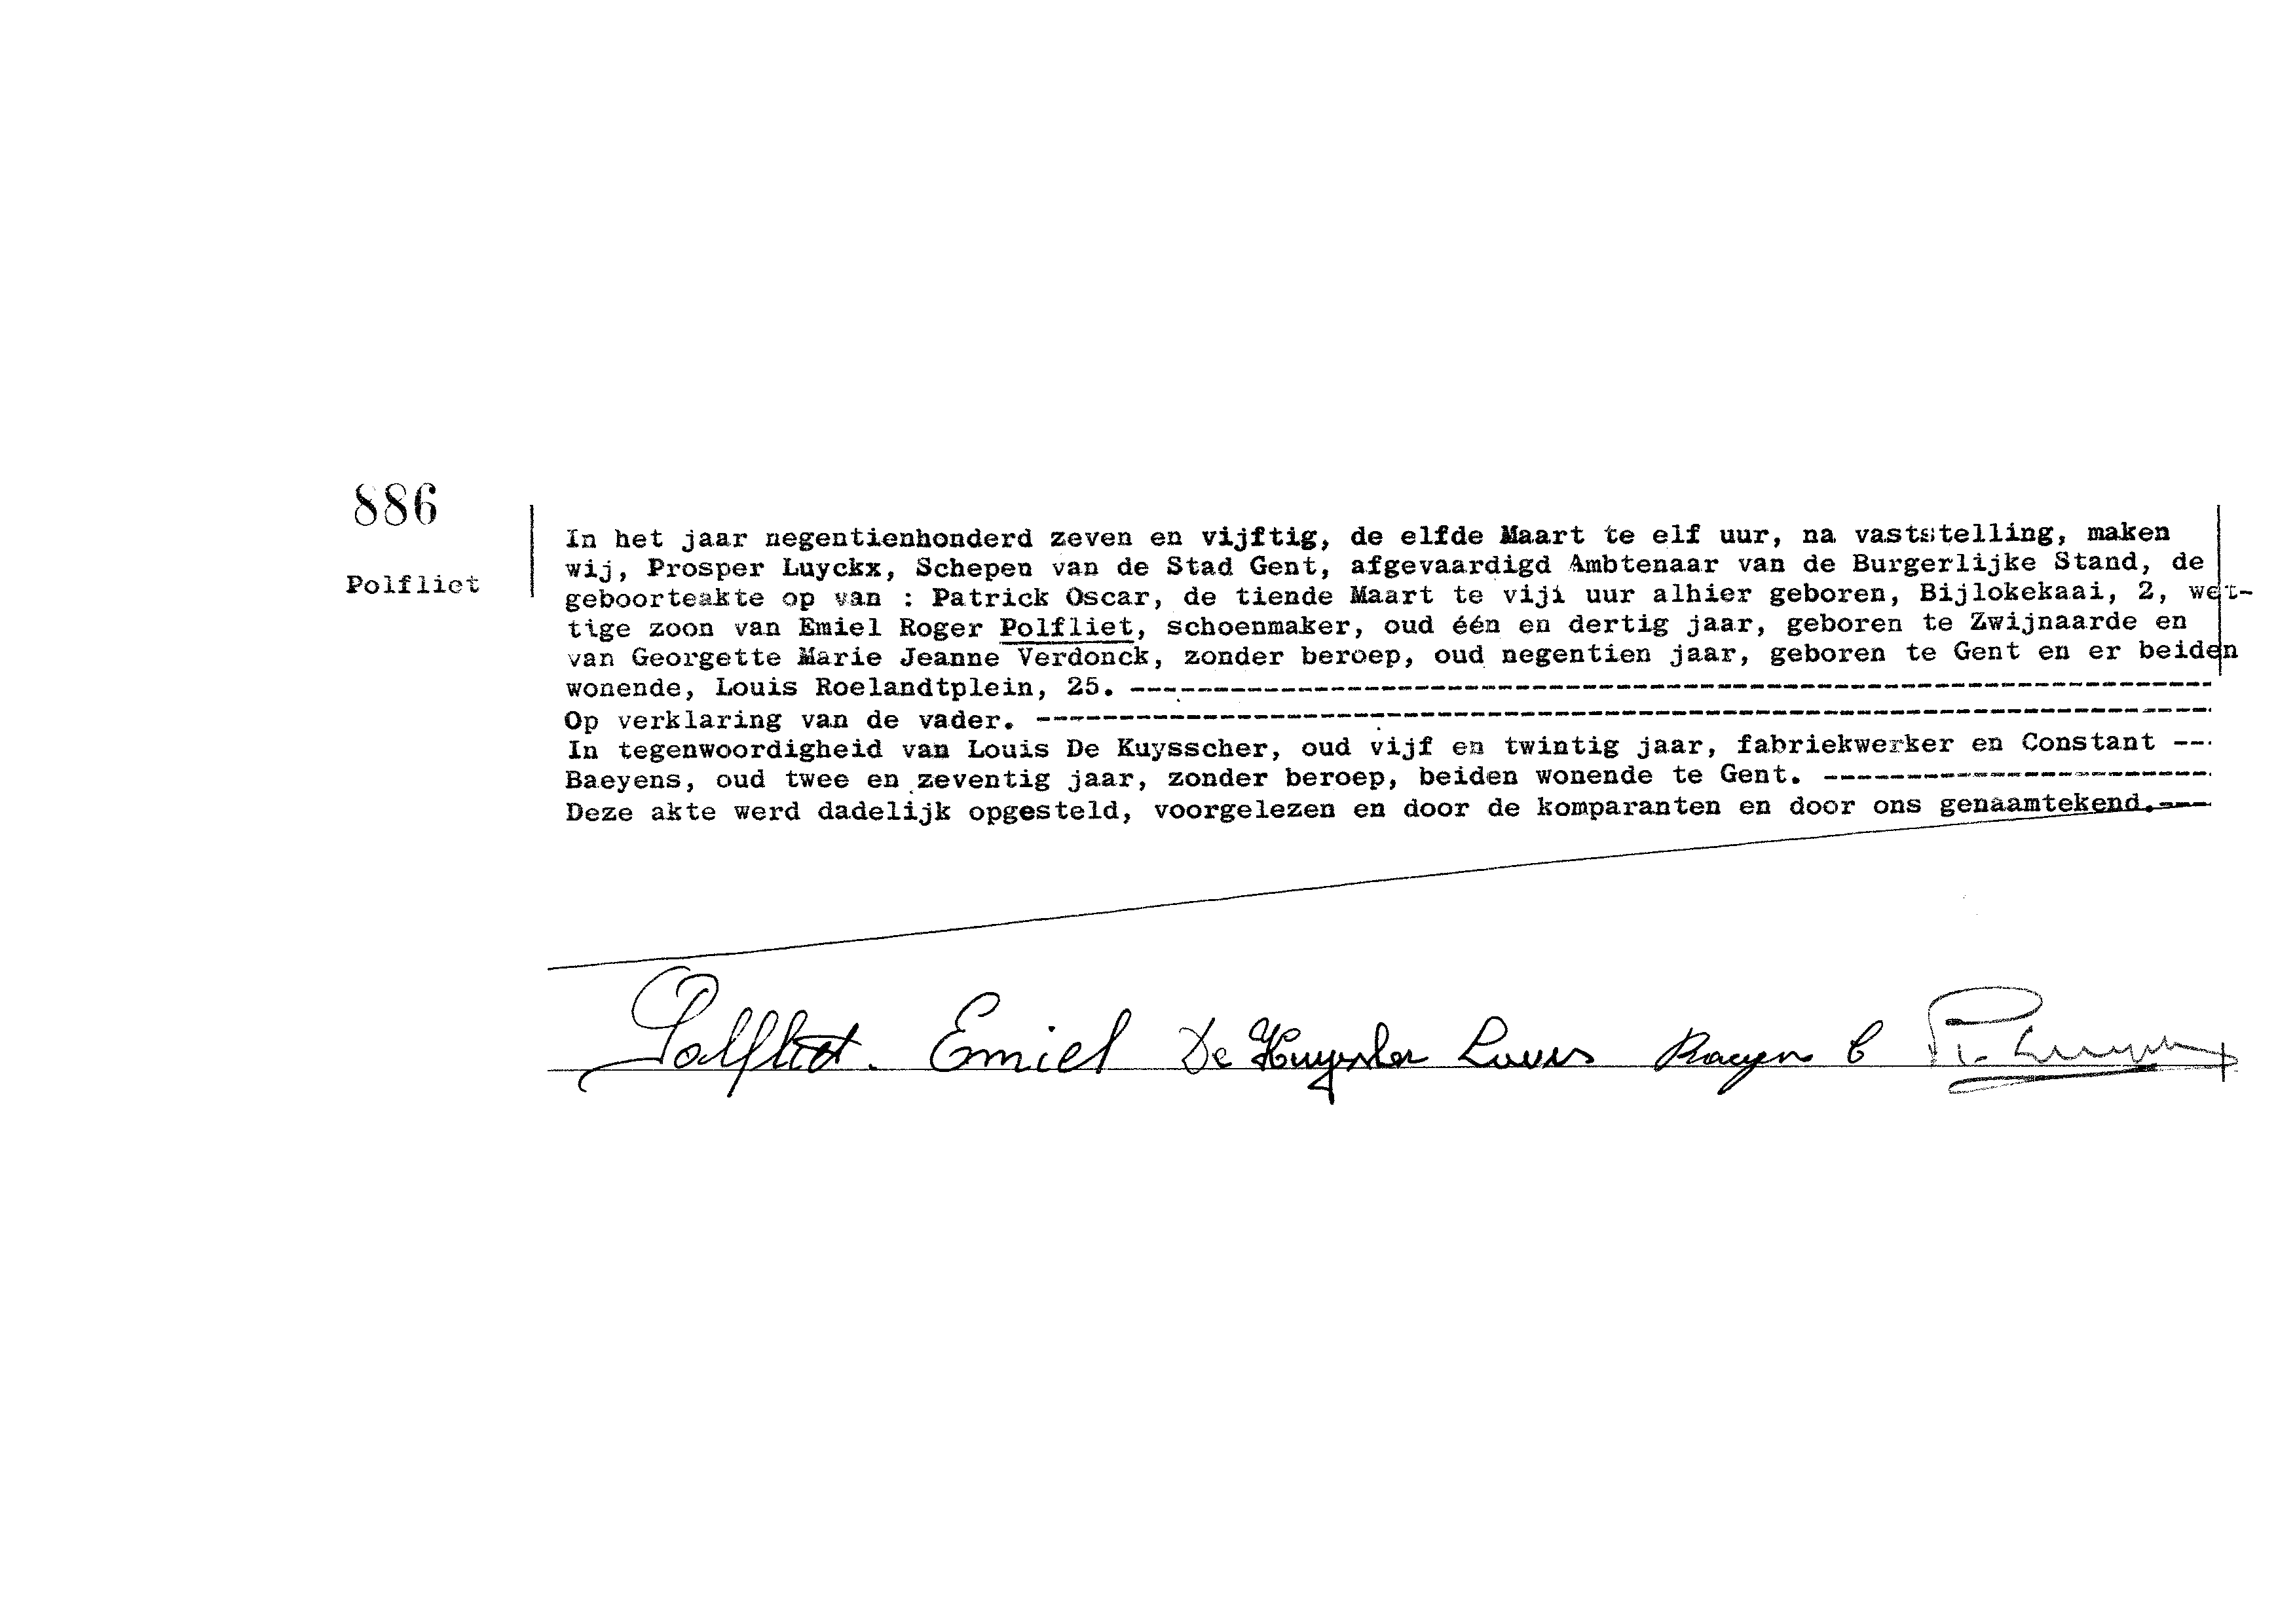 886
Polfliet
In het jaar negentienhonderd zeven en vijftig, de elfde Maart te elf uur, na vaststelling, maken
wij, Prosper Luyckx, Schepen van de Stad Gent, afgevaardigd Ambtenaar van de Burgerlijke Stand, de
geboorteakte op van : Patrick Oscar, de tiende Maart te vijf uur alhier geboren, Bijlokekaai, 2, wet-
tige zoon van Emiel Roger Polfliet, schoenmaker, oud één en dertig jaar, geboren te Zwijnaarde en
van Georgette Marie Jeanne Verdonck, zonder beroep, oud negentien jaar, geboren te Gent en er beiden
wonende, Louis Roelandtplein, 25. ----------
Op verklaring van de vader. ----------
In tegenwoordigheid van Louis De Kuysscher, oud vijf en twintig jaar, fabriekwerker en Constant --
Baeyens, oud twee en zeventig jaar, zonder beroep, beiden wonende te Gent. ----------
Deze akte werd dadelijk opgesteld, voorgelezen en door de komparanten en door ons genaamtekend.---
Polfliet. Emiel De Louis